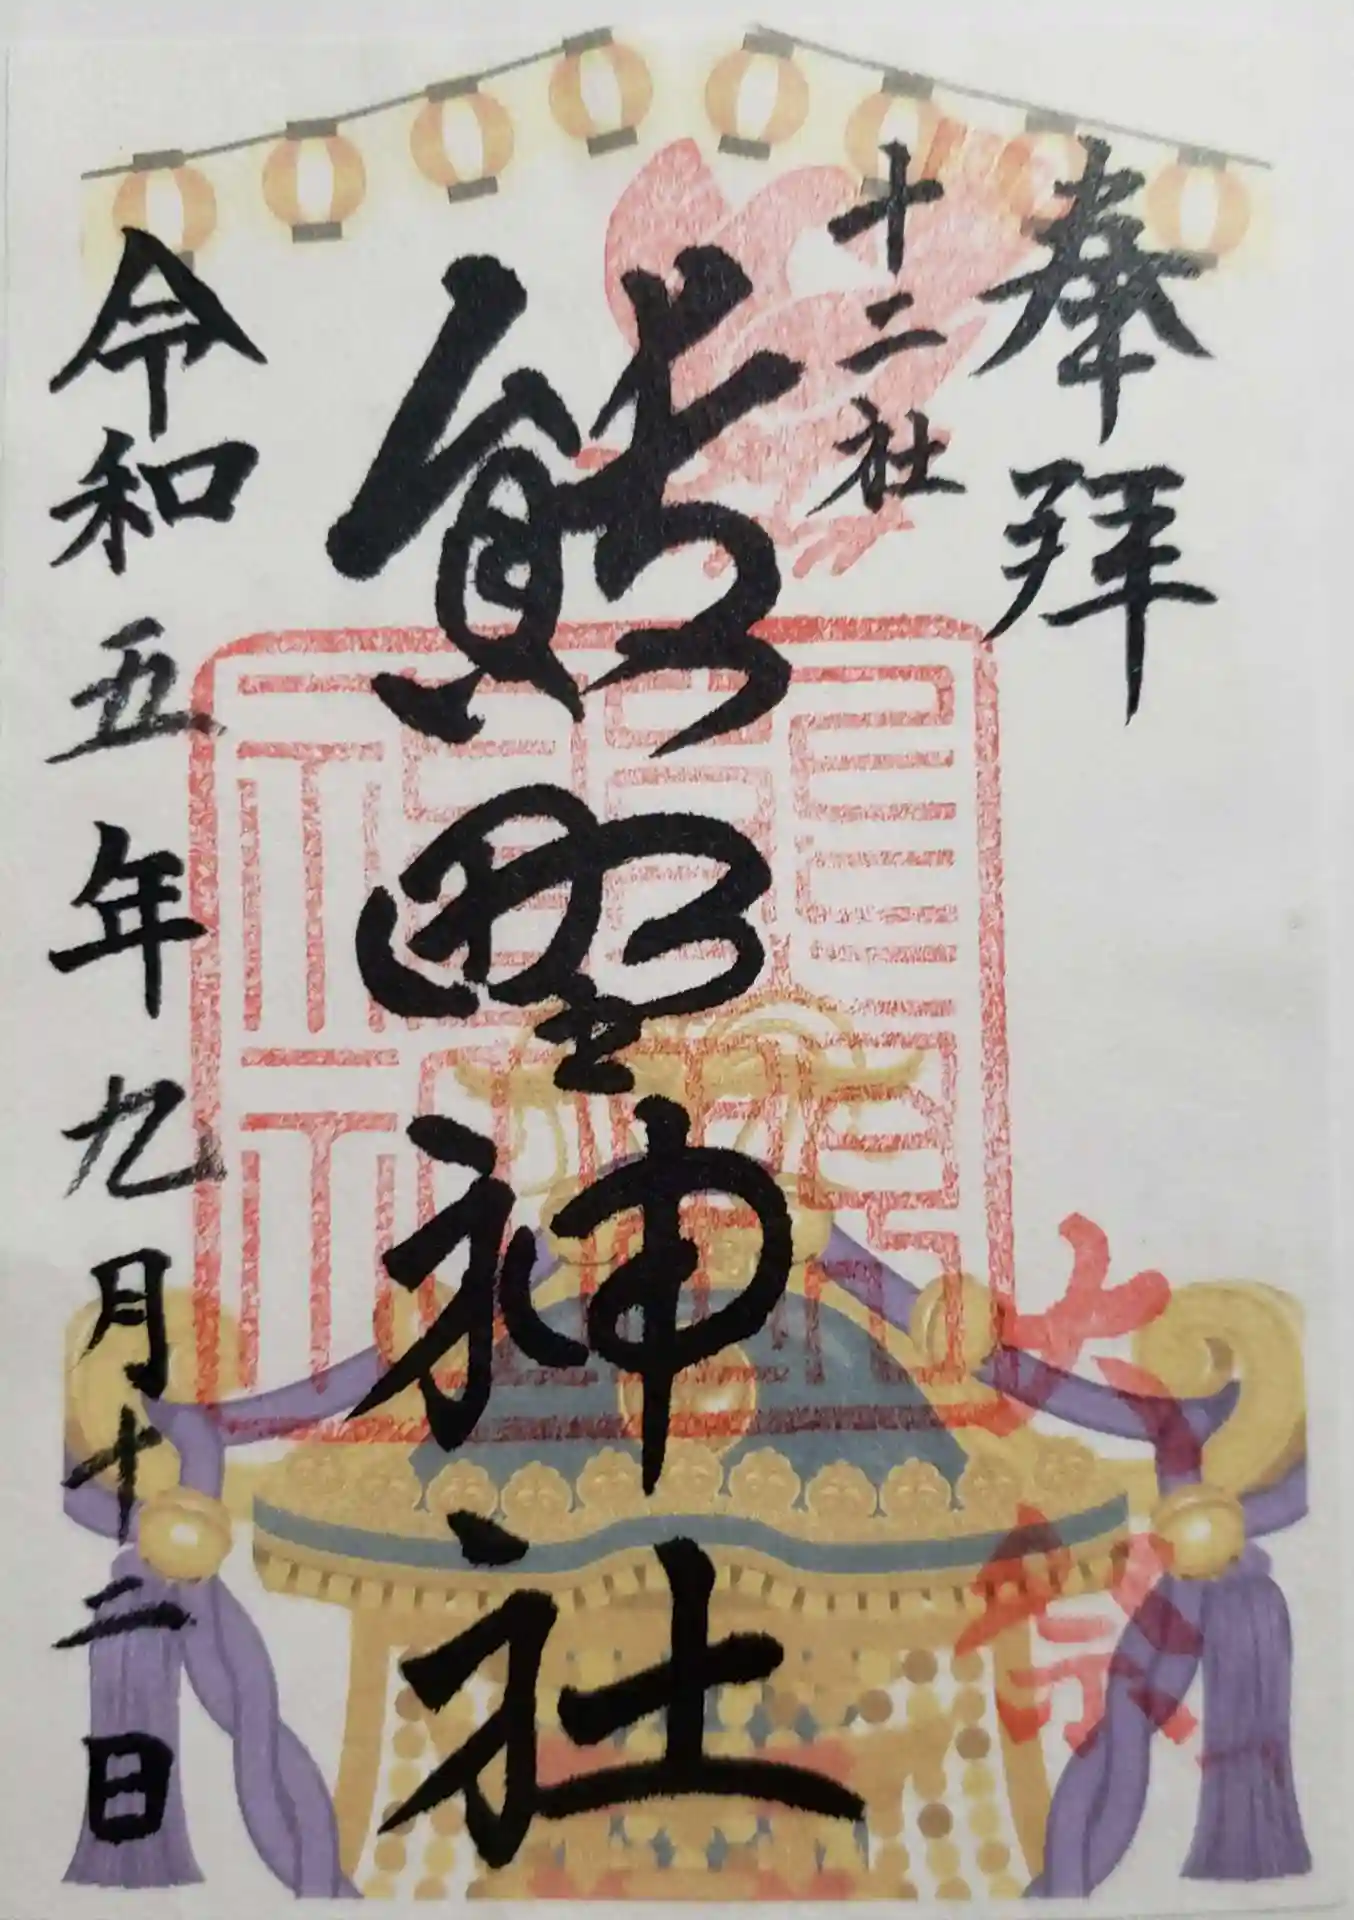 奉拝
十二社
熊野神社
令和五年九月十二日
大祭